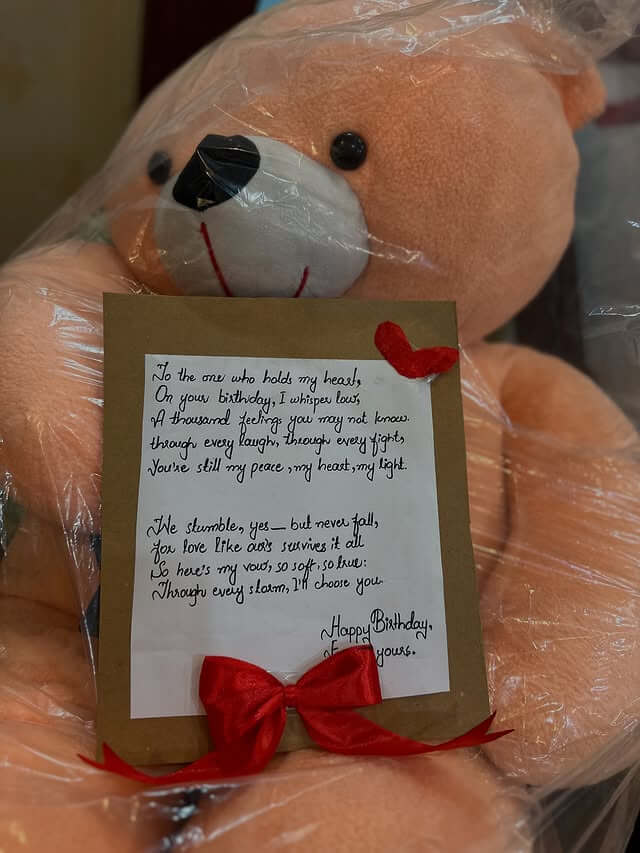 To the one who holds my heart,
On your birthday, I whisper low,
A thousand feelings you may not know.
through every laugh, through every fight,
You're still my peace, my heart, my light.
We stumble, yes — but never fall,
for love like ours survives it all
So here's my vow, so soft, so true:
Through every storm, I'll choose you
Happy Birthday,
yours.